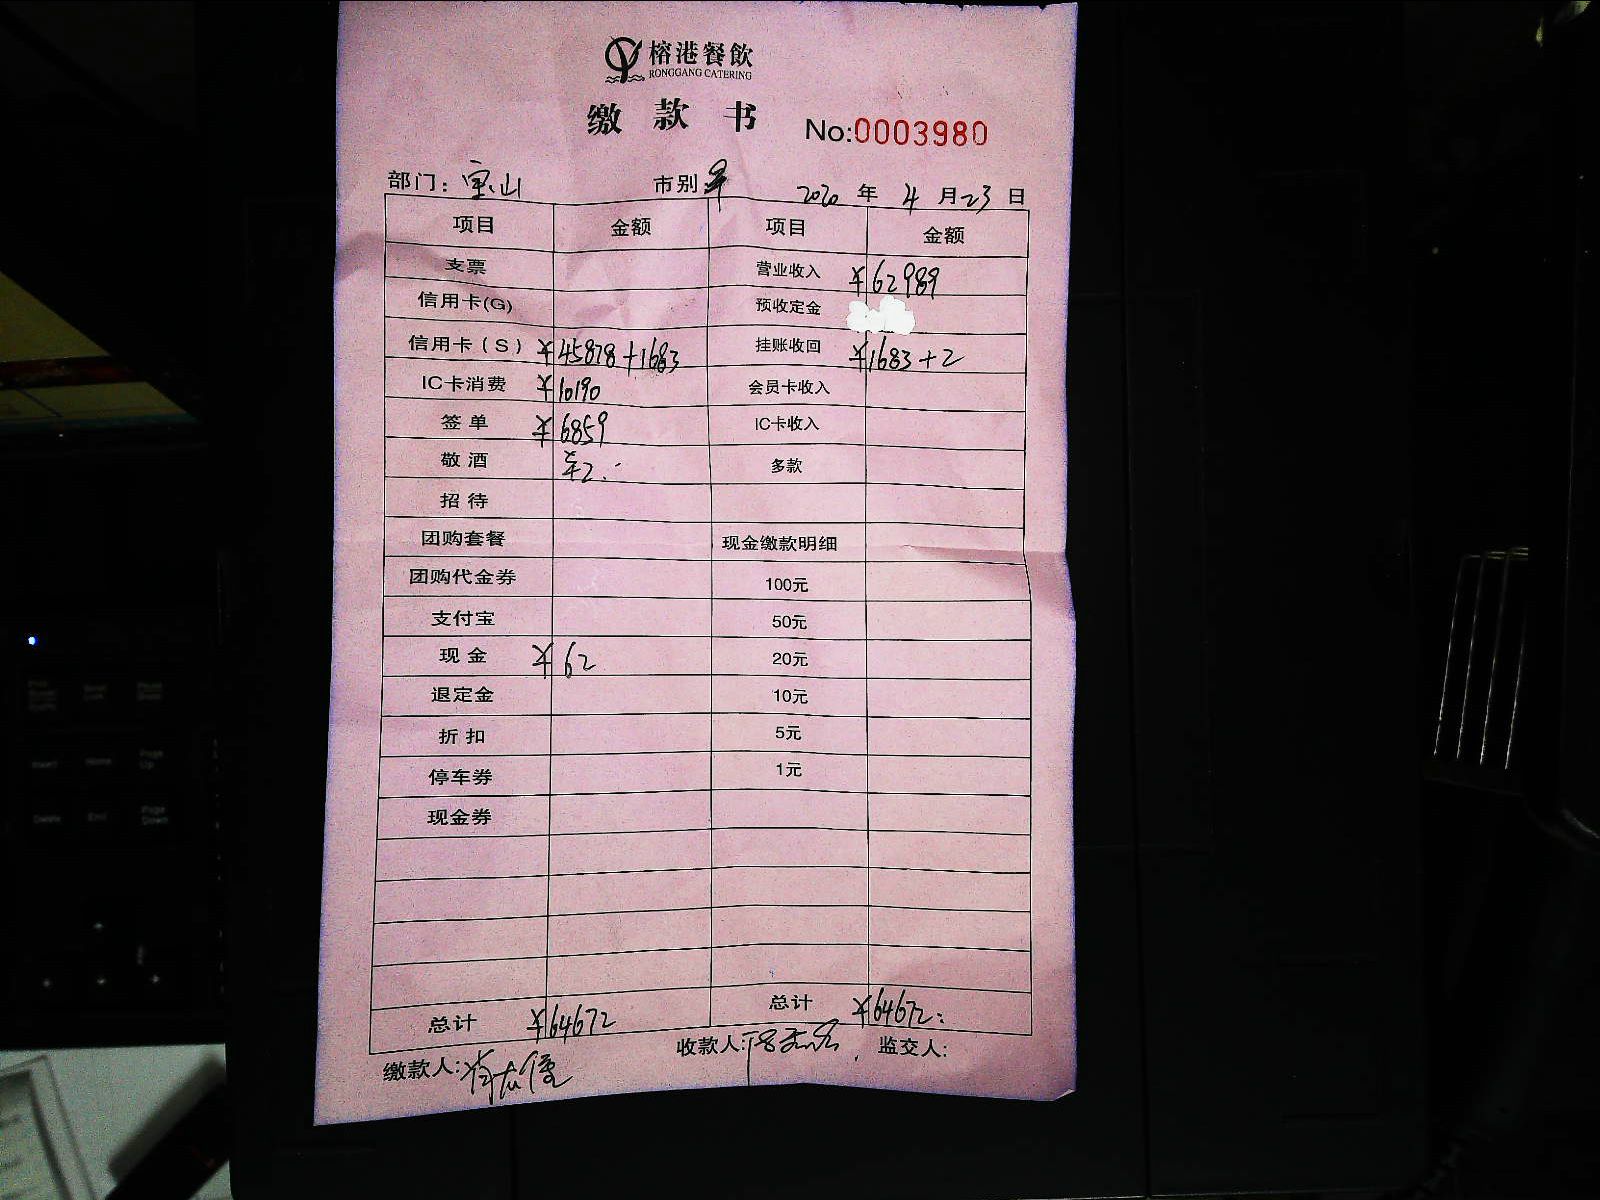 榕港餐飲
RONGGANG CATERING
缴款书
No:0003980
部门：宝山 市别 2020年4月23日
项目 金额 项目 金额
支票 营业收入 ¥62989
信用卡(G) 预收定金
信用卡（S） ¥45878+1683 挂账收回 ¥1683+2
IC卡消费 ¥10190 会员卡收入
签单 ¥6859 IC卡收入
敬酒 ¥2 多款
招待
团购套餐 现金缴款明细
团购代金券 100元
支付宝 50元
现金 ¥62 20元
退定金 10元
折扣 5元
停车券 1元
现金券
总计 ¥64672 总计 ¥64672
缴款人: 收款人: 监交人: